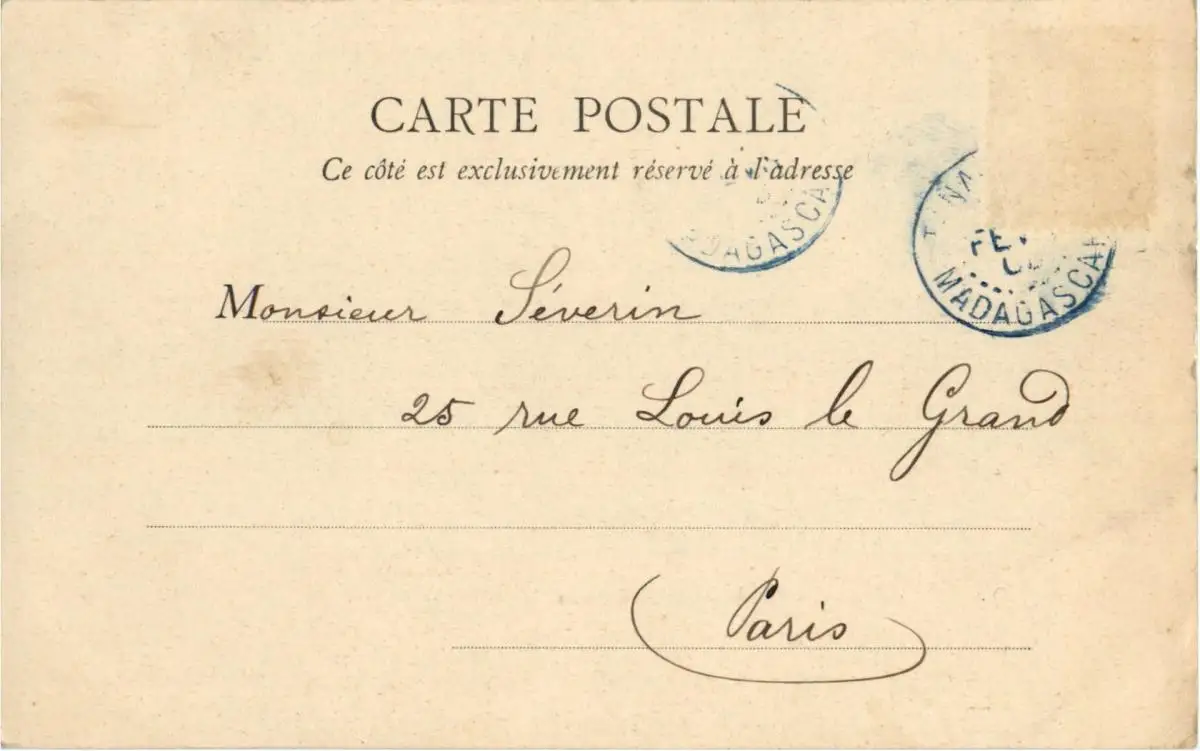 CARTE POSTALE
Ce côté est exclusivement réservé à l'adresse
MADAGASCAR
Monsieur Séverin
25 rue Louis le Grand
Paris